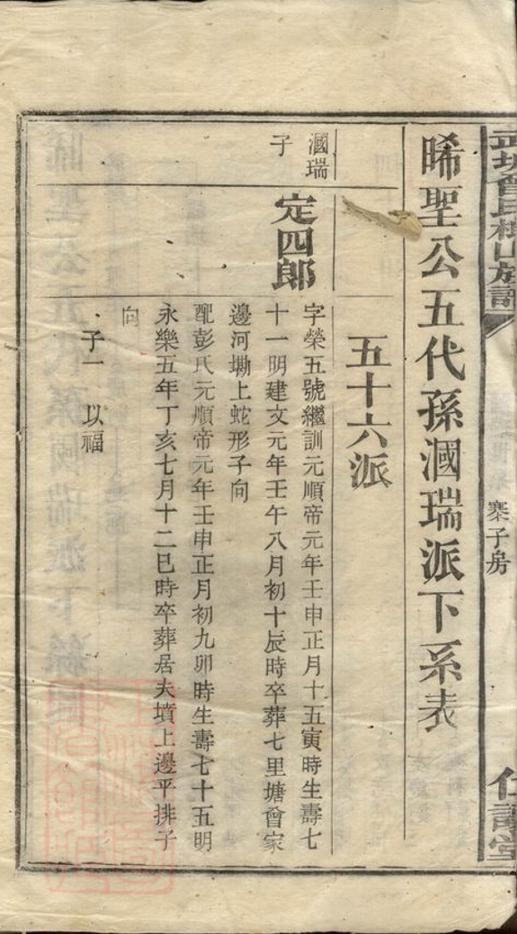 武城曾氏楂山族譜
寀子房
仁讓堂
晞聖公五代孫漍瑞派下系表
五十六派
漍瑞子
定四郎
字榮五號繼訓元順帝元年壬申正月十五寅時生壽七
十一明建文元年壬午八月初十辰時卒葬七里塘曾家
邊河墈上蛇形子向
配彭氏元順帝元年壬申正月初九卯時生壽七十五明
永樂五年丁亥七月十二巳時卒葬居夫墳上邊平排子
向
子一 以福